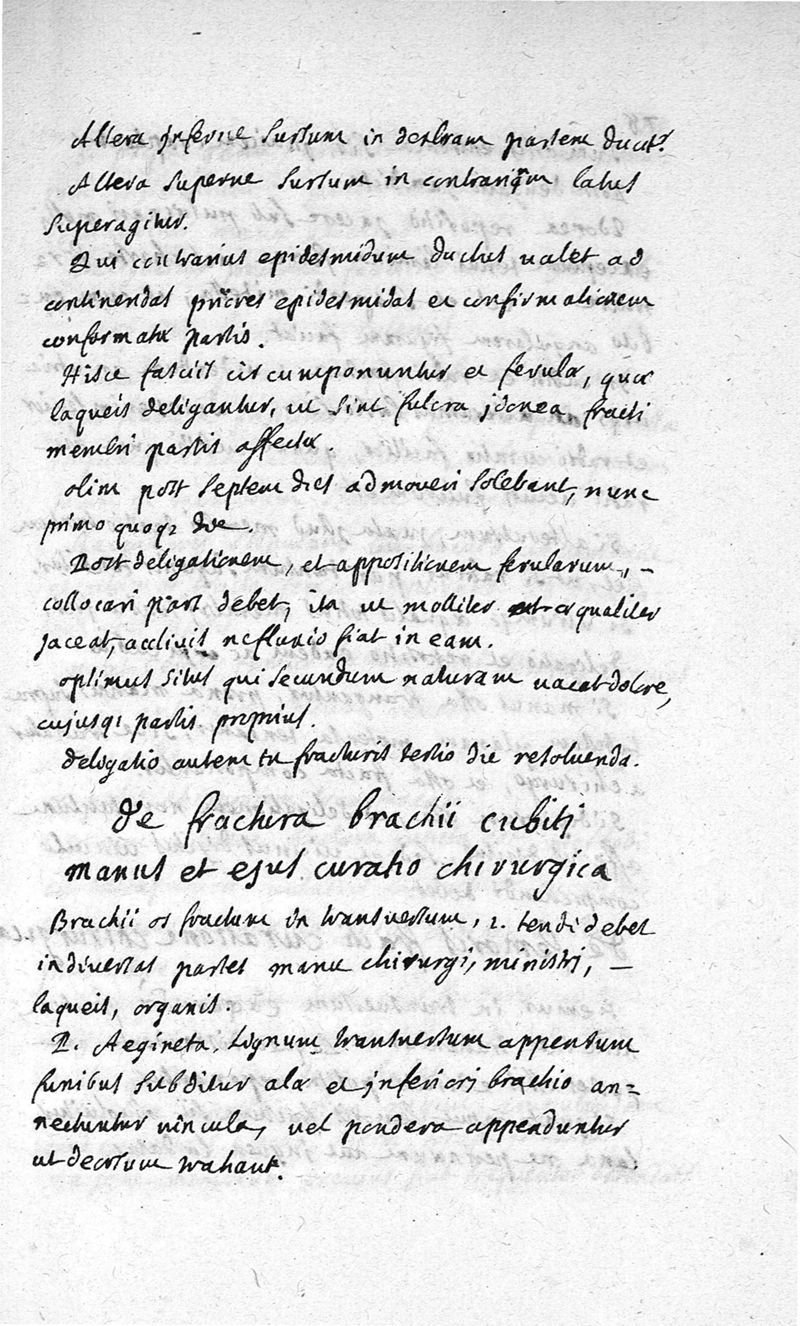 Altera inferne sursum in dextram partem ducit.
Altera superne sursum in contrarium latus
superagitur.
Qui contrarius epidesmidum ductus valet ad
continendas priores epidesmidas et confirmationem
conformatæ partis.
Hisce fasciis circumponuntur et ferulæ, quæ
laqueis deligantur, ut sint fulcra jdonea fracti
membri partis affectæ.
olim post septem dies admoveri solebant, nunc
primo quoq; die.
Post deligationem, et appositionem ferularum, –
collocari pars debet, ita ut molliter æqualiter
jaceat, acclivis ne fluxio fiat in eam.
optimus situs qui secundum naturam vacat dolore,
cujusq; partis proprius.
deligatio autem in fracturis tertio die resolvenda.
de fractura brachii cubiti
manus et ejus curatio chirurgica
Brachii os fractum in transversum, 1. tendi debet
in diversas partes manu chirurgi, ministri, –
laqueis, organis.
P. Aegineta. Lignum transversum appensum
funibus subditur alæ et jnferiori brachio an=
nectuntur vincula, vel pondera appenduntur
ut deorsum trahant.